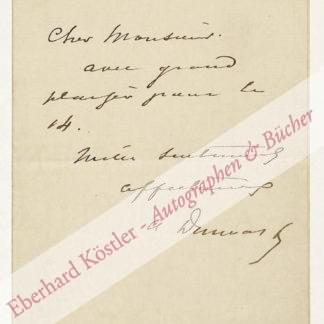 Cher Monsieur.
avec grand
plaisir pour le
14.
Mille sentiments
affectueux
A Dumas f
Eberhard Köstler - Autographen & Bücher